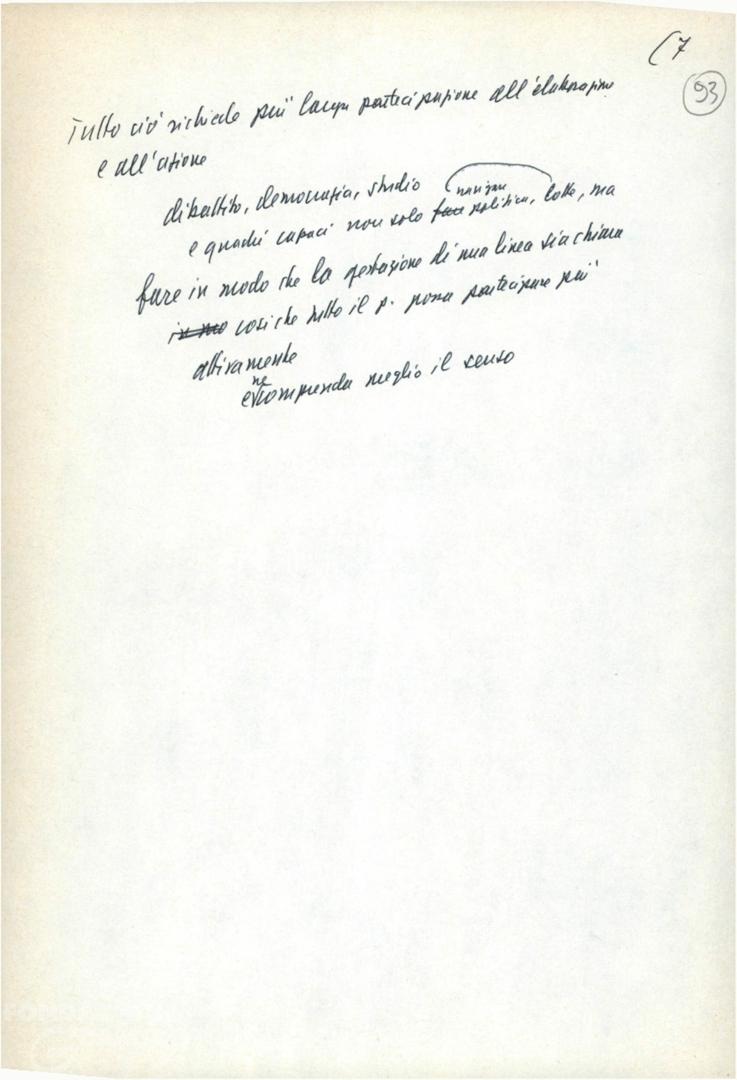 (7
93
Tutto ciò richiede più larga partecipazione all'elaborazione
e all'azione
dibattito, democrazia, studio
e quadri capaci non solo fare politica, lotte, ma
fare in modo che la gestazione di una linea sia chiara
così che tutto il p. possa partecipare più
attivamente
e ne comprenda meglio il senso